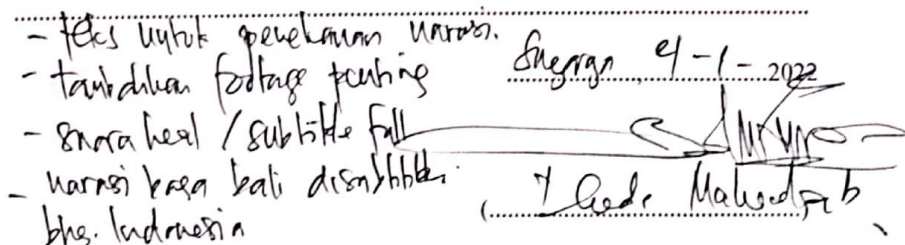 - teks untuk penekanan narasi.
- tambahkan footage penting
- suara heal / subtitle full
- narasi basa bali disubtitle
bhs. Indonesia
4 - 1 - 2022
( I Gede Mahendra )